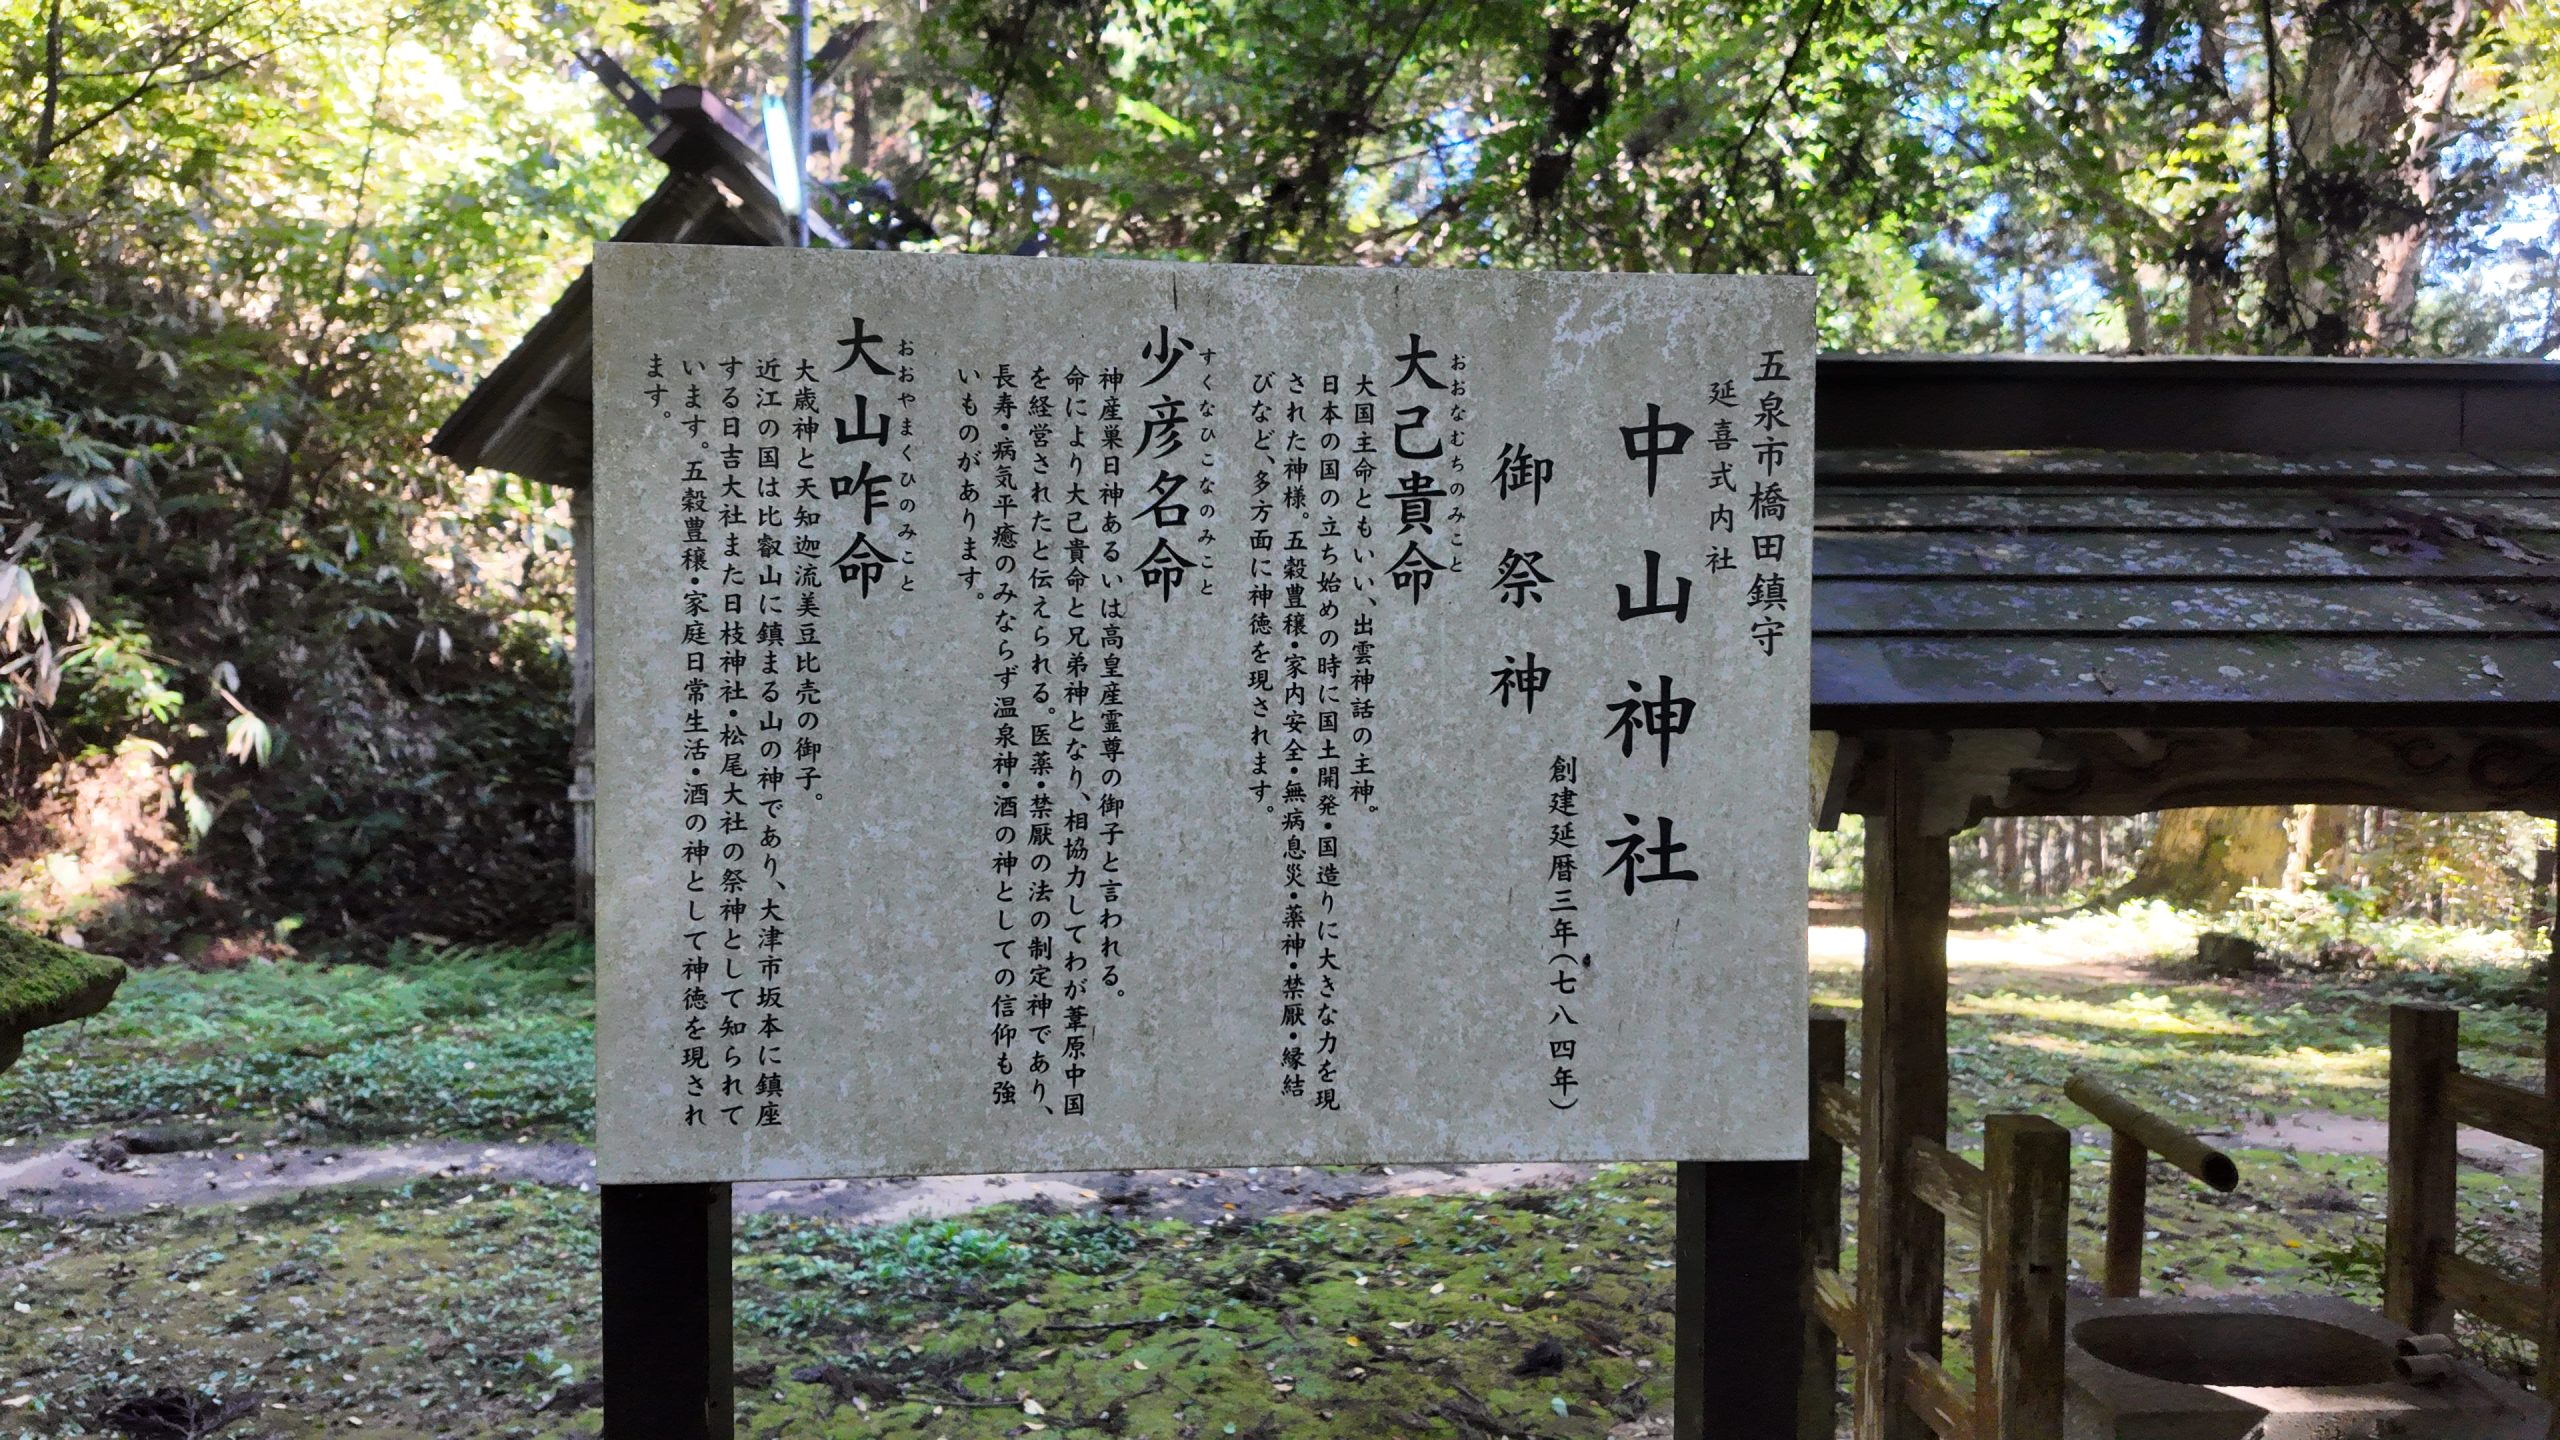 五泉市橋田鎮守
延喜式内社
中山神社
創建延暦三年(七八四年)
御祭神
おおなむちのみこと
大己貴命
大国主命ともいい、出雲神話の主神。
日本の国の立ち始めの時に国土開発・国造りに大きな力を現
された神様。五穀豊穣・家内安全・無病息災・薬神・禁厭・縁結
びなど、多方面に神徳を現されます。
すくなひこなのみこと
少彦名命
神産巣日神あるいは高皇産霊尊の御子と言われる。
命により大己貴命と兄弟神となり、相協力してわが葦原中国
を経営されたと伝えられる。医薬・禁厭の法の制定神であり、
長寿・病気平癒のみならず温泉神・酒の神としての信仰も強
いものがあります。
おおやまくひのみこと
大山咋命
大歳神と天知迦流美豆比売の御子。
近江の国は比叡山に鎮まる山の神であり、大津市坂本に鎮座
する日吉大社また日枝神社・松尾大社の祭神として知られて
います。五穀豊穣・家庭日常生活・酒の神として神徳を現され
ます。